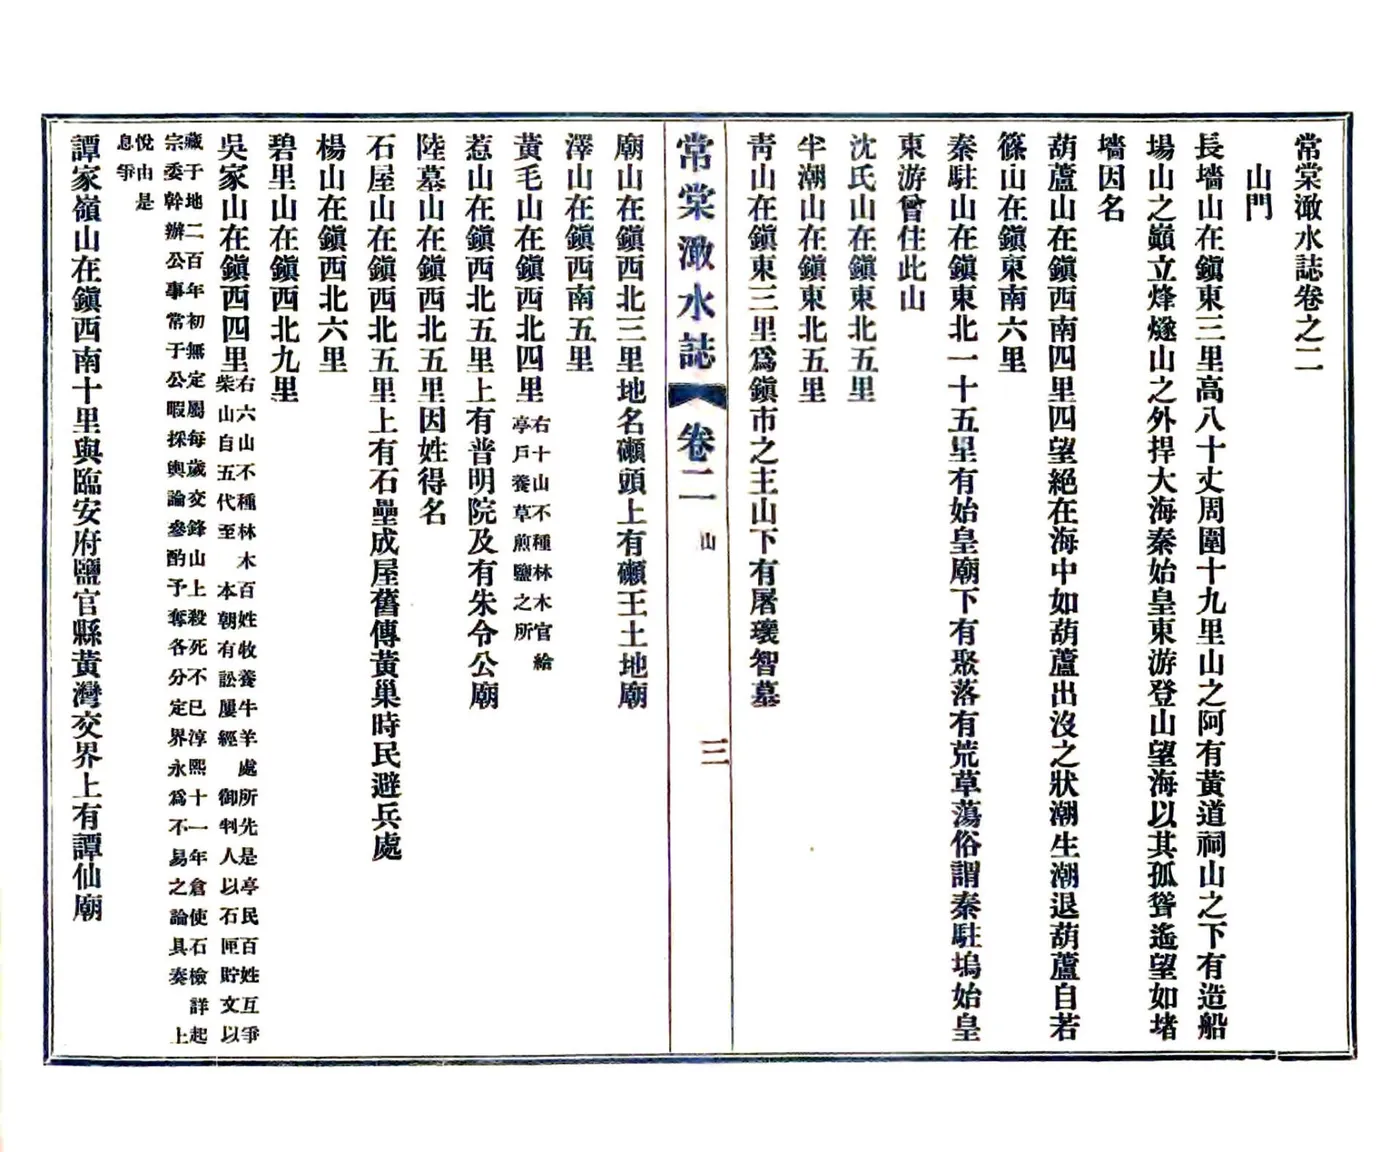 常棠澉水誌卷之二
山門
長墻山在鎭東三里高八十丈周圍十九里山之阿有黃道祠山之下有造船
場山之巔立烽燧山之外捍大海秦始皇東游登山望海以其孤聳遙望如堵
墻因名
葫蘆山在鎭西南四里四望絕在海中如葫蘆出沒之狀潮生潮退葫蘆自若
篠山在鎭東南六里
秦駐山在鎭東北一十五里有始皇廟下有聚落有荒草蕩俗謂秦駐塢始皇
東游曾住此山
沈氏山在鎭東北五里
半潮山在鎭東北五里
靑山在鎭東三里爲鎭市之主山下有屠瓌智墓
常棠澉水誌 卷二 山 三
廟山在鎭西北三里地名𥖎頭上有𥖎王土地廟
澤山在鎭西南五里
黃毛山在鎭西北四里右十山不種林木官給
亭戶養草煎鹽之所
惹山在鎭西北五里上有普明院及有朱令公廟
陸墓山在鎭西北五里因姓得名
石屋山在鎭西北五里上有石壘成屋舊傳黃巢時民避兵處
楊山在鎭西北六里
碧里山在鎭西北九里
吳家山在鎭西四里右六山不種林木百姓牧養牛羊處所先是亭民百姓互爭
柴山自五代至 本朝有訟屢經 御判人以石匣貯文以
藏于地二百年初無定屬每歲交鋒山上殺死不已淳熙十一年倉使石檢詳起
宗委幹辦公事常于公暇採輿論參酌予奪各分定界永爲不易之論具奏 上
悅由是
息爭
譚家嶺山在鎭西南十里與臨安府鹽官縣黃灣交界上有譚仙廟